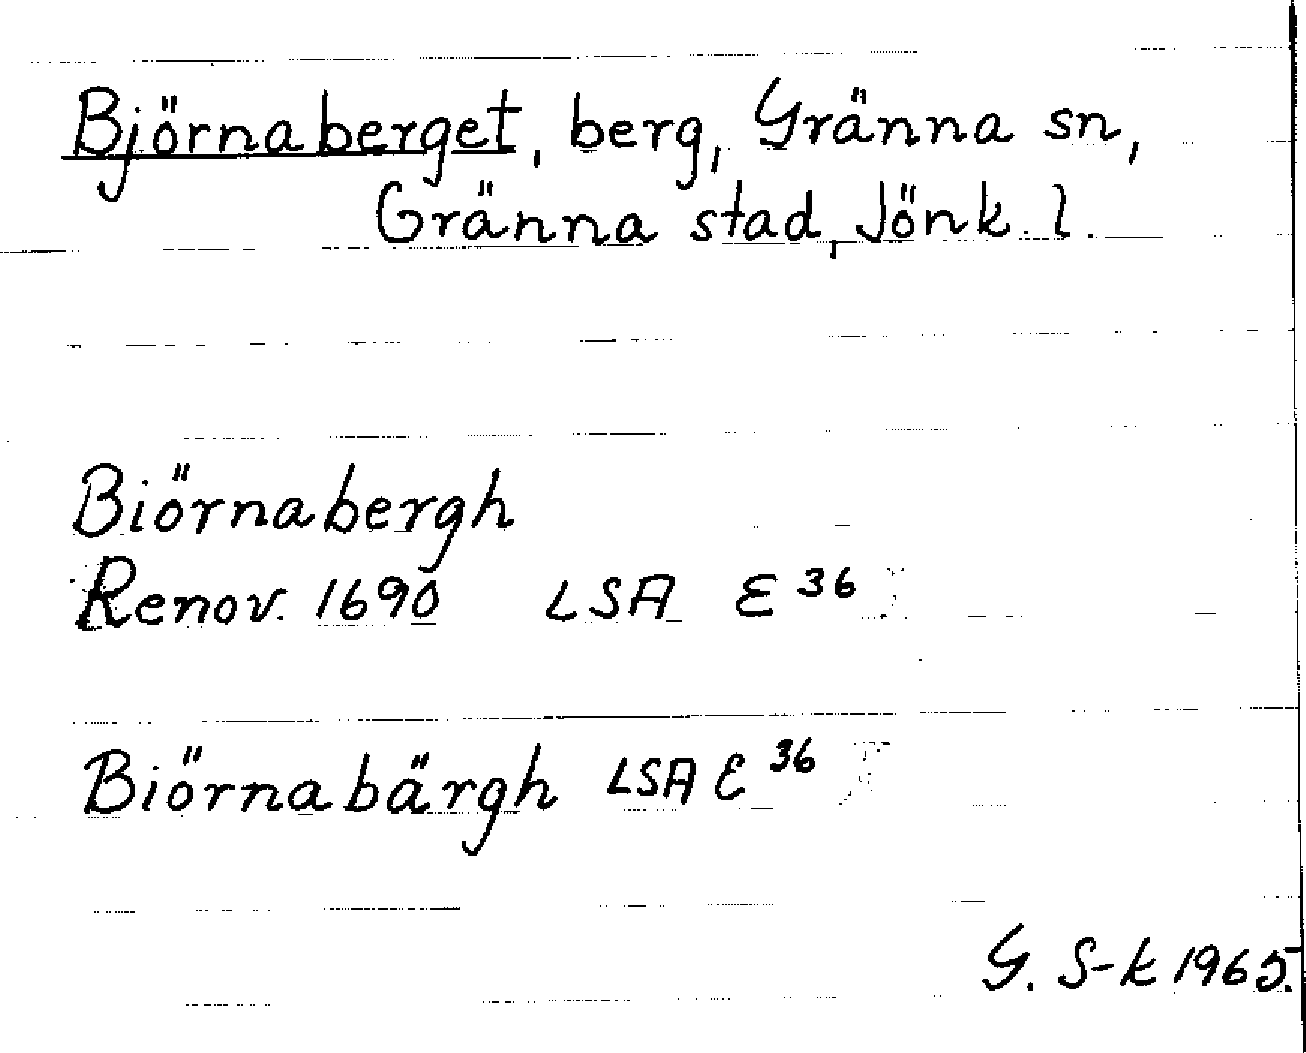 Björnaberget, berg, Gränna sn,
Gränna stad, Jönk. l.
Biörnabergh
Renov. 1690 LSA E 36
Biörnabärgh LSA E 36
G. S-k 1965.